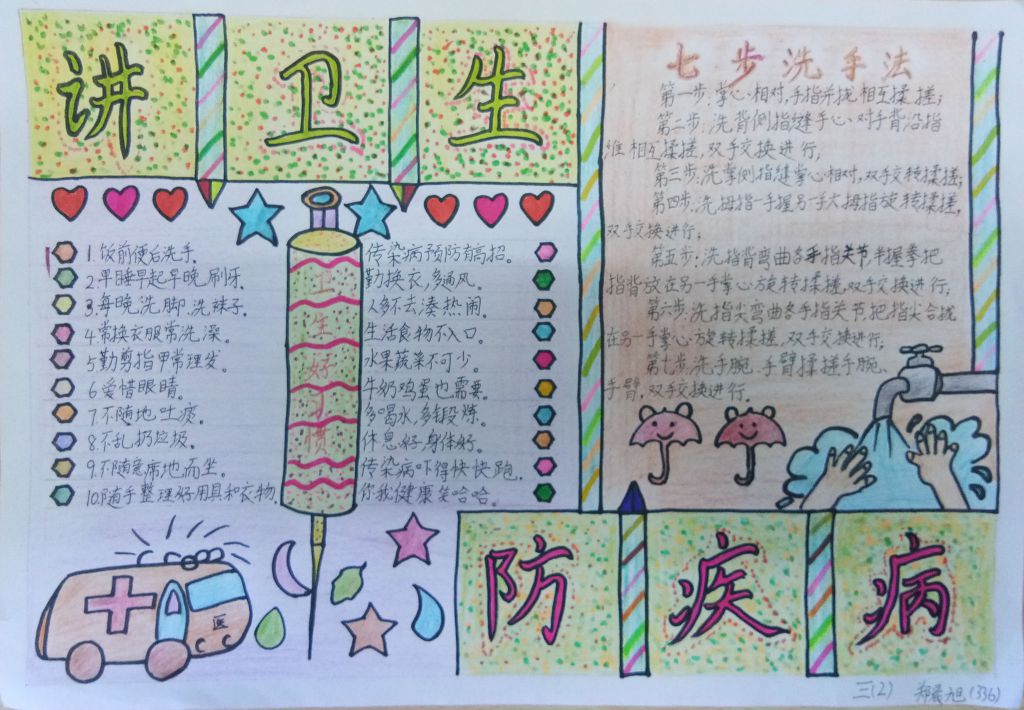 讲卫生
1.饭前便后洗手.
2.早睡早起早晚刷牙.
3.每晚洗脚洗袜子.
4常换衣服常洗澡。
5勤剪指甲常理发.
6爱惜眼睛。
7.不随地吐痰。
8.不乱扔垃圾。
9.不随意席地而坐。
10.随手整理好用具和衣物.
卫生好习惯
传染病预防有高招.
勤换衣,多通风。
人多不去凑热闹.
生活食物不入口。
水果蔬菜不可少。
牛奶鸡蛋也需要.
多喝水,多锻炼。
休息好,身体好。
传染病吓得快快跑.
你我健康笑哈哈。
七步洗手法
第一步:掌心相对,手指并拢相互揉搓;
第二步:洗背侧指缝手心对手背沿指
相互揉搓,双手交换进行;
第三步:洗掌侧指缝掌心相对,双手交转揉搓;
第四步:洗拇指一手握另手大拇指旋转揉搓,
双手交换进行;
第五步:洗指背弯曲各手指关节半握拳把
指背放在另一手掌心旋转揉搓,双手交换进行;
第六步:洗指尖弯曲各手指关节,把指尖合拢
在另一手掌心旋转揉搓,双手交换进行;
第七步:洗手腕、手臂揉搓手腕、
手臂,双手交换进行.
医
防疾病
三(2) 郑晨旭(336)